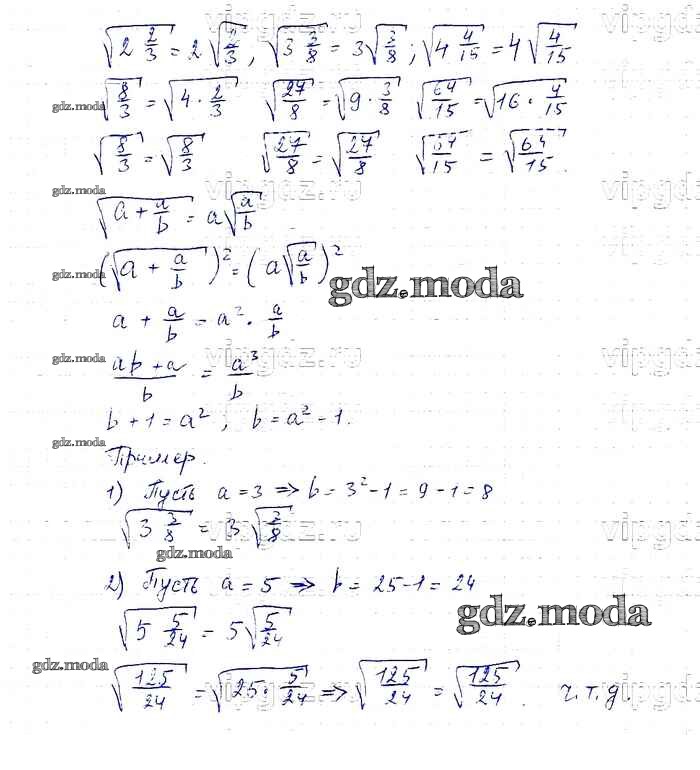 √(2 2/3) = 2√(2/3), √(3 3/8) = 3√(3/8); √(4 4/15) = 4√(4/15)
√(8/3) = √(4 · 2/3) √(27/8) = √(9 · 3/8) √(64/15) = √(16 · 4/15)
gdz.moda
√(8/3) = √(8/3) √(27/8) = √(27/8) √(64/15) = √(64/15).
gdz.moda
vipgdz.ru
√(a + a/b) = a√(a/b)
(√(a + a/b))² = (a√(a/b))²
gdz.moda
gdz.moda
a + a/b = a² · a/b
gdz.moda
vipgdz.ru
(ab + a)/b = a³/b
b + 1 = a²; b = a² - 1.
gdz.moda
Пример.
1) Пусть a = 3 => b = 3² - 1 = 9 - 1 = 8
√(3 3/8) = 3√(3/8)
vipgdz.ru
gdz.moda
2) Пусть a = 5 => b = 25 - 1 = 24
√(5 5/24) = 5√(5/24)
gdz.moda
gdz.moda
√(125/24) = √(25 · 5/24) => √(125/24) = √(125/24). ч.т.д.